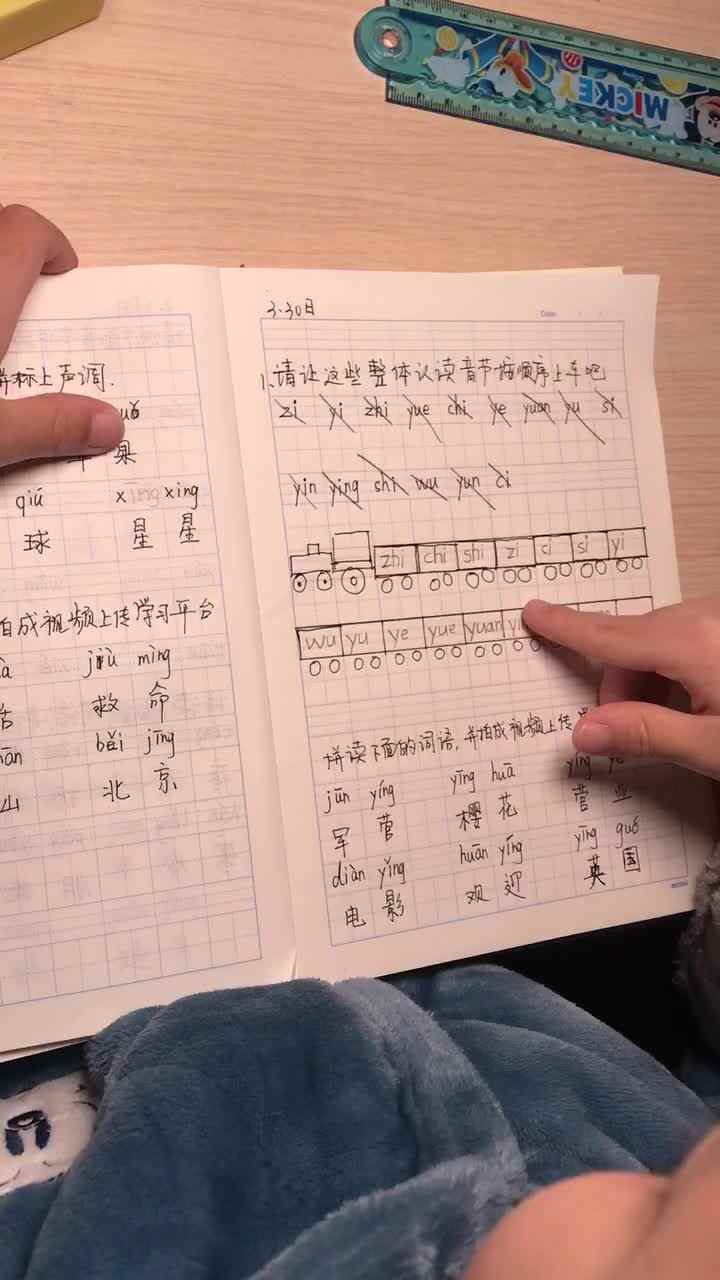 MICKEY
并标上声调.
uǒ
果
qiú xīng xing
球 星 星
拍成视频上传学习平台
jiù mìng
救 命
běi jīng
山 北 京
3.30日
Date:
1.请让这些整体认读音节按顺序上车吧
zi yi zhi yue chi ye yuan yu si
yin ying shi wu yun ci
zhi chi shi zi ci si yi
wu yu ye yue yuan
拼读下面的词语,并拍成视频上传
jūn yíng yīng huā yíng
军 营 樱 花 营 业
diàn yǐng huān yíng yīng guó
电 影 欢 迎 英 国